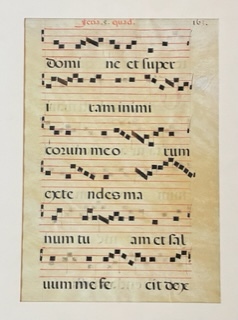 feria. s. quad. 161.
domi ne et super
i ram inimi
corum meo rum
exte ndes ma
num tu am et sal
uum me fe cit dex